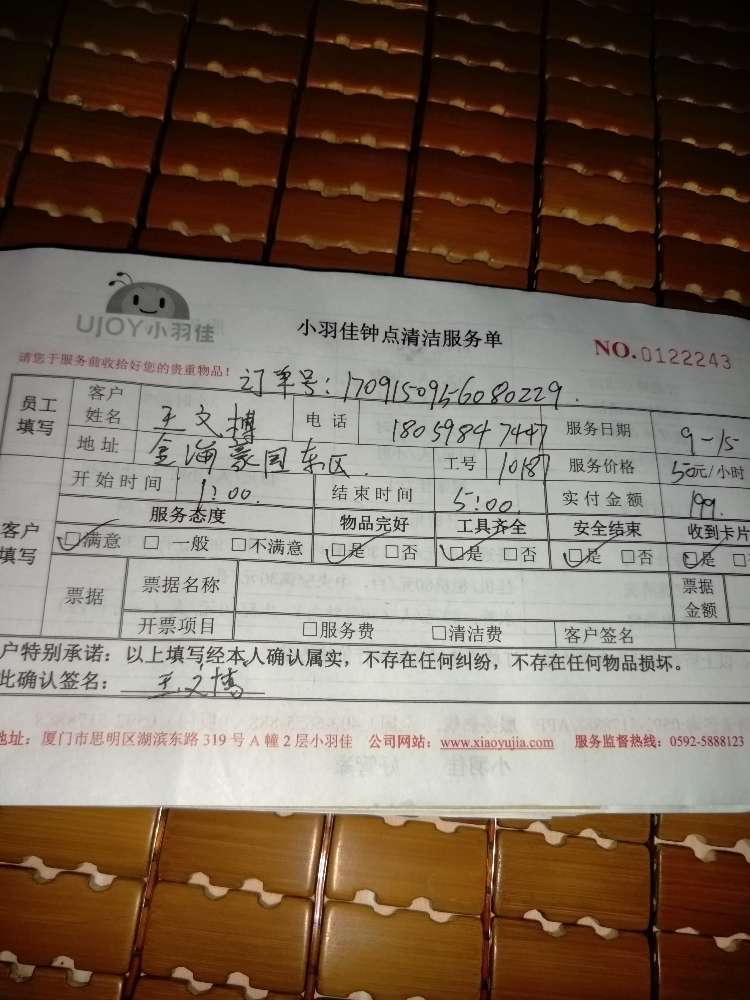 UJOY小羽佳
小羽佳钟点清洁服务单
NO.0122243
请您于服务前收拾好您的贵重物品！
订单号：1709150956080229.
员工填写 客户姓名 王文博 电话 18059847447 服务日期 9-15
地址 金海豪园东区 工号 10187 服务价格 50元/小时
客户填写 开始时间 1:00. 结束时间 5:00. 实付金额 199.
服务态度 物品完好 工具齐全 安全结束 收到卡片
☑满意 □一般 □不满意 ☑是 □否 ☑是 □否 ☑是 □否 ☑是 □
票据 票据名称 票据金额
开票项目 □服务费 □清洁费 客户签名
户特别承诺：以上填写经本人确认属实，不存在任何纠纷，不存在任何物品损坏。
此确认签名：王文博
地址：厦门市思明区湖滨东路 319 号 A 幢 2 层小羽佳 公司网站：www.xiaoyujia.com 服务监督热线：0592-5888123